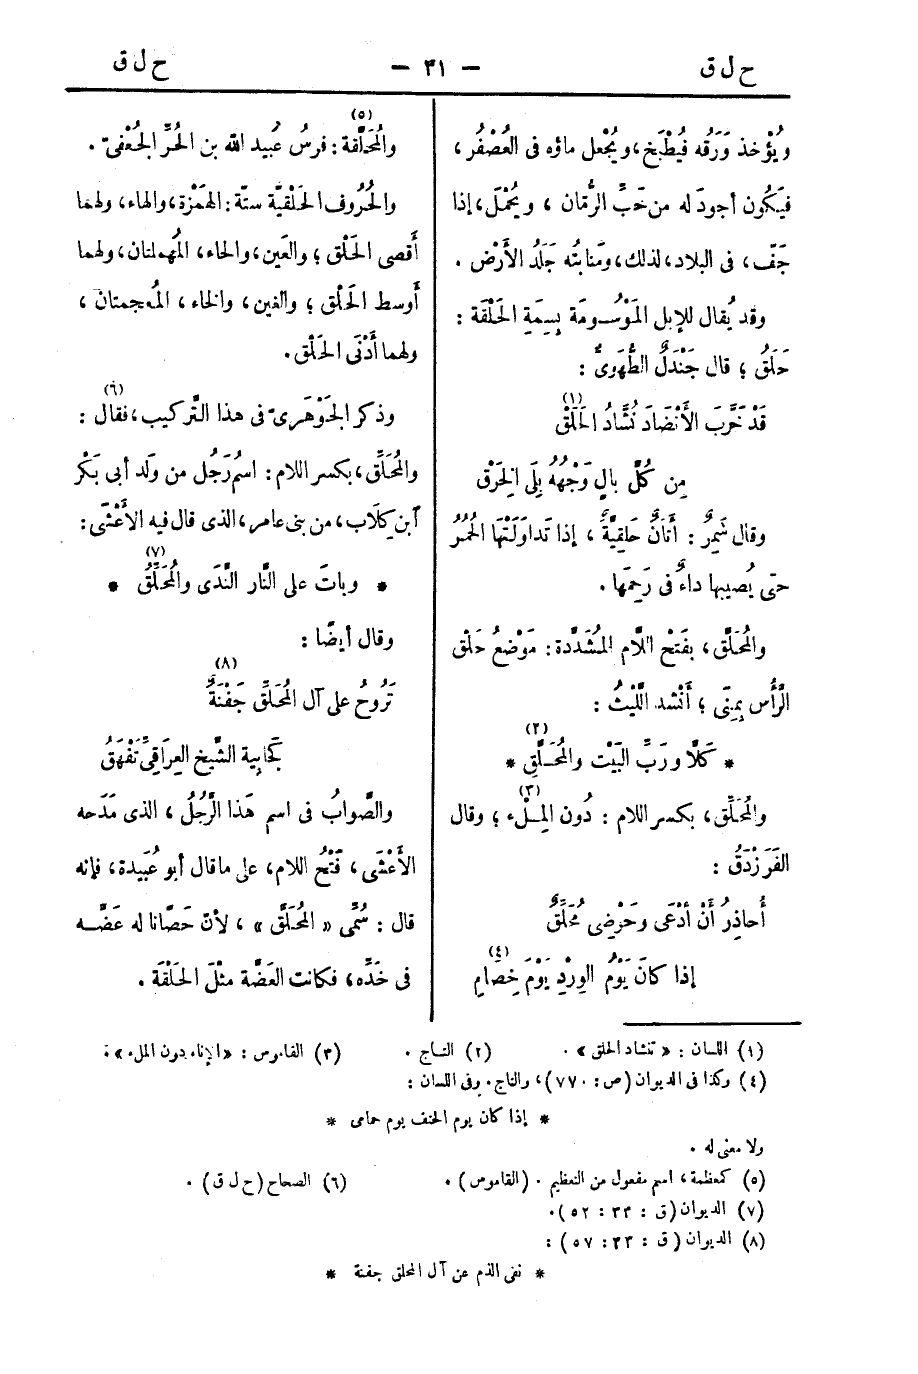 ح ل ق
— ٣١ —
ح ل ق
ويُؤْخذ وَرَقُه فيُطْبَخ، ويُجْعل ماؤه فى العُصْفُر،
فيَكُون أجودَ له من حَبِّ الرُّمان ، ويُحْمَل، إذا
جَفّ، فى البلاد، لذلك، ومَنابتُه جَلَدُ الأَرْض .
وقد يُقال للإبل المَوْسُومَة بِسِمَةِ الحَلْقَة :
حَلَقٌ ؛ قال جَنْدَلٌ الطُّهَوِىُّ :
قَدْ خَرَّبَ الأَنْضَادَ نُشَّادُ الحَلَقْ (١)
مِن كُلِّ بالٍ وَجْهُهُ بِلَى الخِرَقْ
وقال شَمِرٌ : أَتَانٌ حَلَقِيَّةٌ ، إذا تَداوَلَتْها الحُمُرُ
حتى يُصيبها داءٌ فى رَحِمَها .
والمُحَلَّق، بفَتْح اللَّام المُشَدَّدة: مَوْضِعُ حَلْق
الرَّأْس بِمِنًى ؛ أَنْشد اللَّيْثُ :
* كَلَّا ورَبِّ البَيْت والمُحَلَّقِ (٢) *
والمُحَلِّق، بكسر اللام : دُون المِلْء (٣) ؛ وقال
الفَرَزْدَقُ :
أُحاذِرُ أَنْ أُدْعَى وحَوْضِى مُحَلِّقٌ
إذا كانَ يَوْمُ الوِرْدِ يَوْمَ خِصَامِ (٤)
والمُحَلَّقة (٥) : فرسُ عُبيد الله بن الحُرِّ الجُعْفِىّ .
والحُرُوف الحَلْقِيّة ستّة: الهَمْزة، والهاء، ولهما
أقصى الحَلْق ؛ والعَين، والحاء، المُهملتان، ولهما
أوسط الحَلْق ؛ والغين، والخاء، المُعجمتان ،
ولهما أَدْنَى الحَلْق .
وذكر الجَوْهَرىّ فى هذا التَّركيب، فقال (٦) :
والمُحَلِّق، بكسر اللام : اسمُ رَجُل من وَلد أبى بَكْر
آبن كِلَاب، من بنى عامر، الذى قال فيه الأَعْشَى :
* وباتَ على النَّار النَّدَى والمُحَلِّقُ (٧) *
وقال أيضًا :
تَرُوحُ على آل المُحَلِّقِ جَفْنَةٌ (٨)
كجَابِية الشَّيْخ العِرَاقِىِّ تَفْهَقُ
والصَّوابُ فى اسم هَذا الرَّجُلُ ، الذى مَدَحه
الأَعْشَى ، فَتْحُ اللام، على ما قال أبو عُبَيدة ، فإنه
قال : سُمِّى « المُحَلَّق » ، لأنّ حَصَانا له عَضَّه
فى خَدِّه، فكانت العَضَّة مثْلَ الحَلْقَة .
(١) اللسان : « تنشاد الحلق » . (٢) التاج . (٣) القاموس : «الإناء دون الملء» .
(٤) وكذا فى الديوان (ص : ٧٧٠)، والتاج. وفى اللسان :
* إذا كان يوم الحتف يوم حمامى *
ولا معنى له .
(٥) كمعظمة ، اسم مفعول من التعظيم . (القاموس) . (٦) الصحاح (ح ل ق) .
(٧) الديوان (ق : ٣٣ : ٥٢).
(٨) الديوان (ق : ٣٣ : ٥٧) :
* نفى الذم عن آل المحلق جفنة *